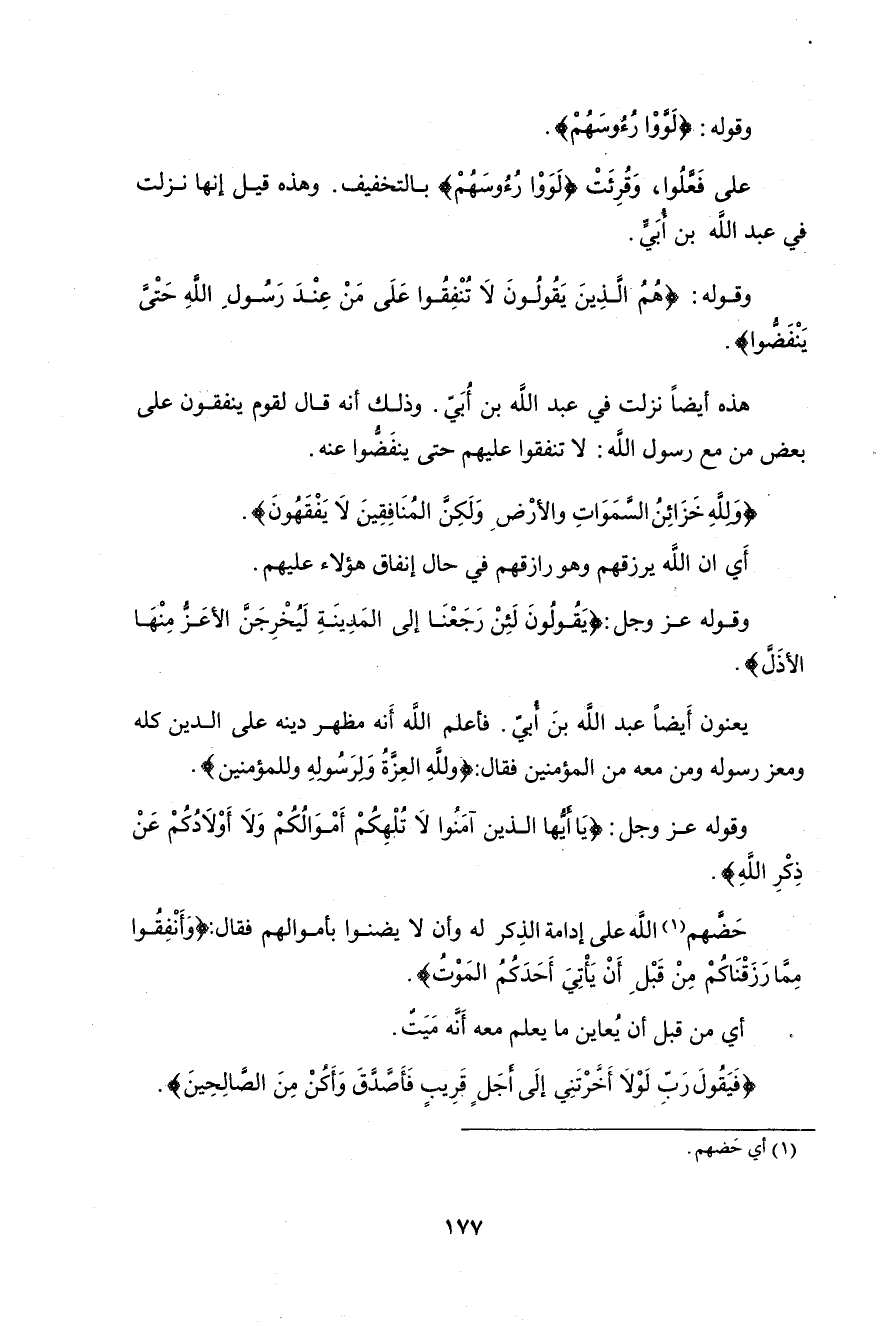 وقوله: ﴿لَوَّوْا رُءُوسَهُمْ﴾.
على فَعَّلُوا، وَقُرِئَتْ ﴿لَوَوْا رُءُوسَهُمْ﴾ بـالتخفيف. وهذه قيـل إنها نـزلت
في عبد اللَّه بن أُبَيٍّ.
وقـوله: ﴿هُمُ الَّـذِينَ يَقُولُـونَ لَا تُنْفِقُـوا عَلَى مَنْ عِنْـدَ رَسُـولِ اللَّهِ حَتْىَّ
يَنْفَضُّوا﴾.
هذه أيضاً نزلت في عبد اللَّه بن أُبَيّ. وذلـك أنه قـال لقوم ينفقـون على
بعض من مع رسول اللَّه: لا تنفقوا عليهم حتى ينفَضُّوا عنه.
﴿وَلِلَّهِ خَزَائِنُ السَّمَوَاتِ والأرْضِ وَلَكِنَّ المُنَافِقِينَ لَا يَفْقَهُونَ﴾.
أَي ان اللَّه يرزقهم وهو رازقهم في حال إنفاق هؤلاء عليهم.
وقـوله عـز وجل:﴿يَقُـولُونَ لَئِنْ رَجَعْنَـا إلى المَدِينَـةِ لَيُخْرِجَنَّ الأعَـزُّ مِنْهَـا
الأذَلَّ﴾.
يعنون أَيضاً عبد اللَّه بنَ أُبيّ. فأعلم اللَّه أَنه مظهـر دينه على الـدين كله
ومعز رسوله ومن معه من المؤمنين فقال:﴿وللَّهِ العِزَّةُ وَلِرَسُولِهِ وللمؤمنين﴾.
وقوله عـز وجل: ﴿يَا أَيُّها الـذين آمَنُوا لَا تُلْهِكُمْ أَمْـوَالُكُمْ وَلَا أَوْلَادُكُمْ عَنْ
ذِكْرِ اللَّهِ﴾.
حَضَّهم(١) اللَّه على إدامة الذِكر له وأن لا يضنـوا بأمـوالهم فقال:﴿وَأَنْفِقُـوا
مِمَّا رَزَقْنَاكُمْ مِنْ قَبْلِ أَنْ يَأْتِيَ أَحَدَكُمُ المَوْتُ﴾.
أي من قبل أن يُعاين ما يعلم معه أَنَّه مَيَتٌ.
﴿فَيَقُولَ رَبِّ لَوْلَا أَخَّرْتَنِي إلَى أَجَلٍ قَرِيبٍ فَأَصَّدَّقَ وَأَكُنْ مِنَ الصَّالِحِينَ﴾.
(١) أي حَضهم.
١٧٧